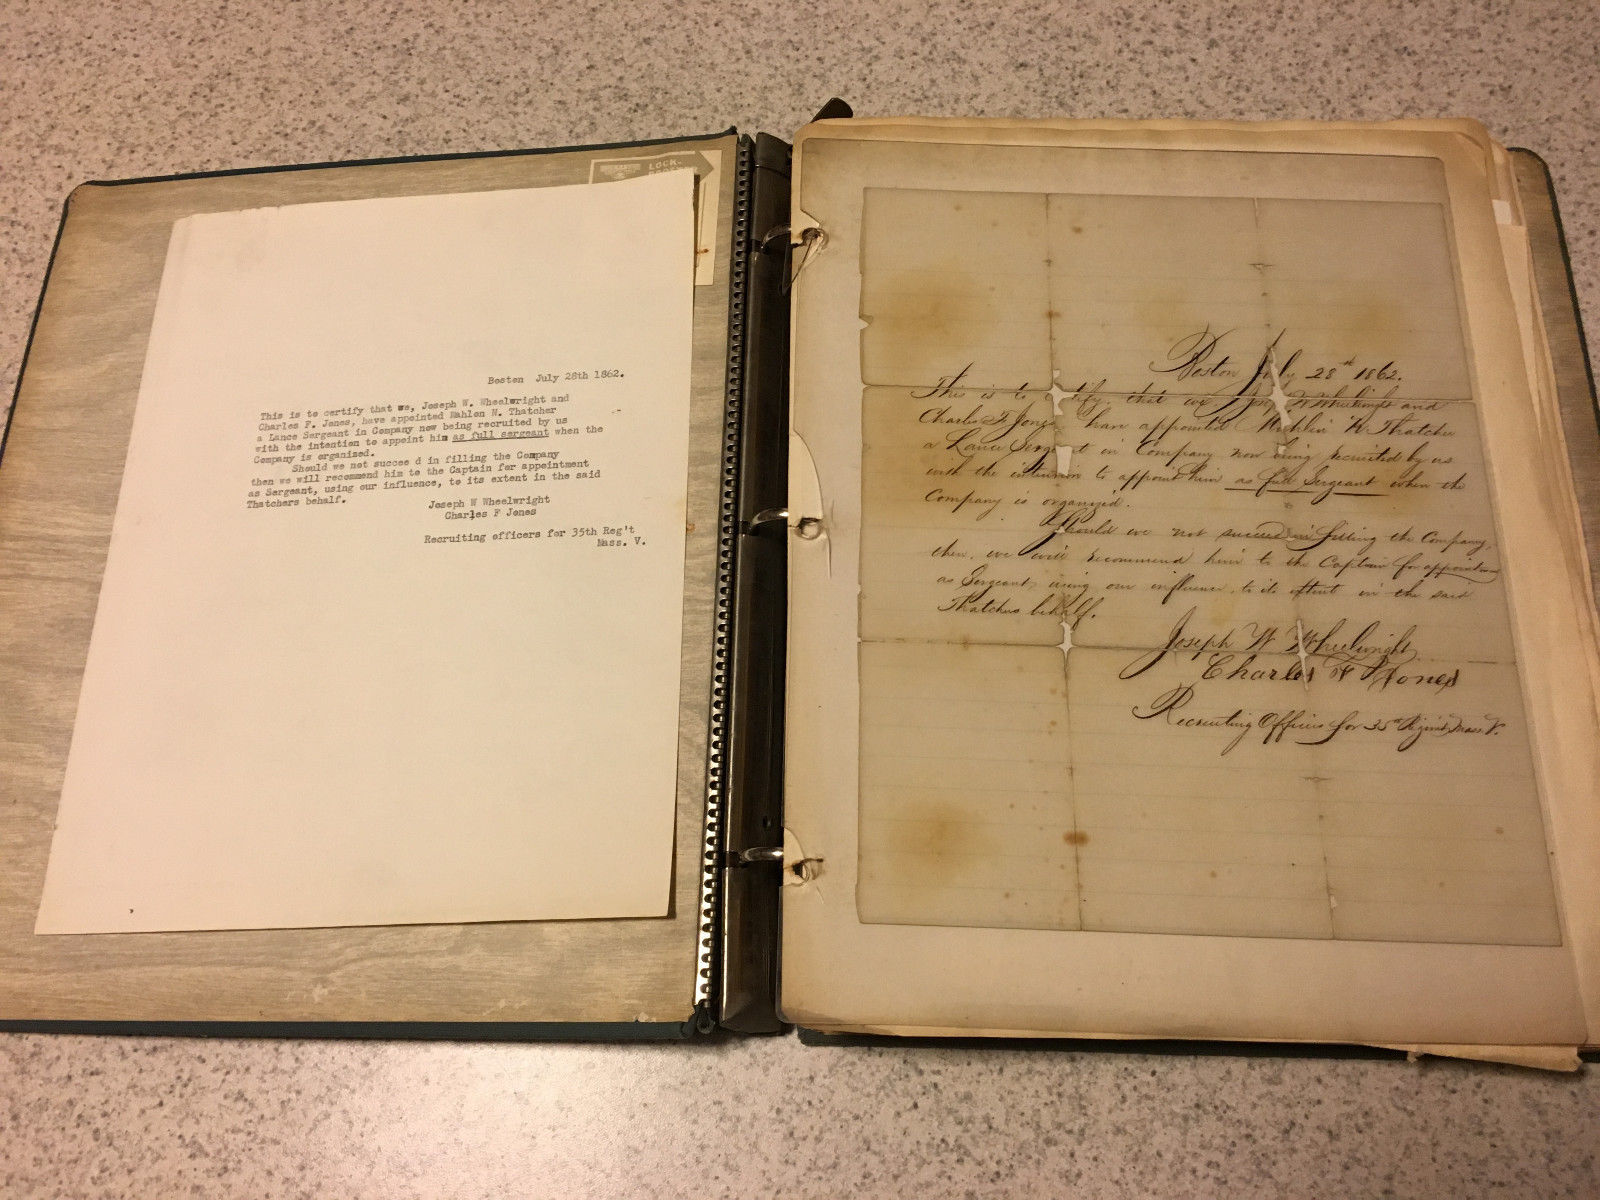 LOCK-
Boston July 28th 1862.
This is to certify that we, Joseph W. Wheelwright and
Charles F. Jones, have appointed Mahlon N. Thatcher
a Lance Sergeant in Company now being recruited by us
with the intention to appoint him as full sergeant when the
Company is organized.
Should we not succee d in filling the Company
then we will recommend him to the Captain for appointment
as Sergeant, using our influence, to its extent in the said
Thatchers behalf.
Joseph W Wheelwright
Charles F Jones
Recruiting officers for 35th Reg't
Mass. V.
Boston July 28th 1862.
This is to certify, that we Wheelwright and
Charles F. Jones have appointed Thatcher
a Lance Sergeant in Company now being recruited by us
with the intention to appoint him as full Sergeant when the
Company is organized.
Should we not succeed in filling the Company,
then, we will recommend him to the Captain for appointment
as Sergeant, using our influence, to its extent in the said
Thatchers behalf.
Joseph W Wheelwright
Charles F Jones
Recruiting Officers for 35th Mass. V.